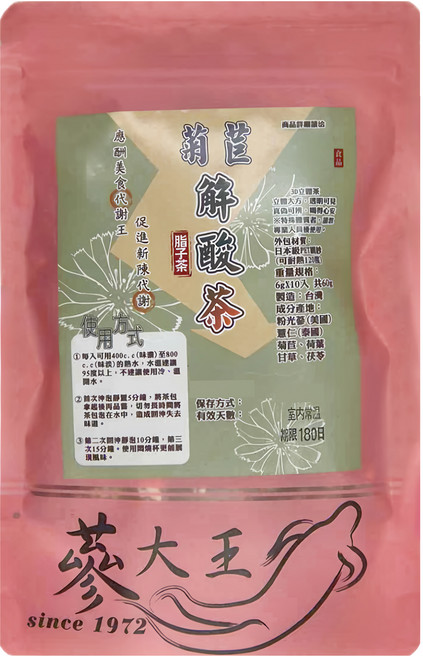 商品詳細請洽
應酬美食代謝王
促進新陳代謝
菊苣
解酸茶
脂子茶
食品
3D立體茶
立體大方，透明可見
真偽可辨，喝得心安
※特殊體質者，請諮
專業人員後使用。
外包材質：
日本級PET細紗
(可耐熱120度)
重量規格：
6gX10入 共60g
製造：台灣
成分產地：
粉光蔘(美國)
薏仁(泰國)
菊苣、荷葉
甘草、茯苓
使用方式
①每入可用400c.c(味濃)至800
c.c(味淡)的熱水，水溫建議
95度以上，不建議使用冷、溫
開水。
②首次沖泡靜置5分鐘，將茶包
拿起後再品嘗，切勿長時間將
茶包泡在水中，造成回沖失去
味道。
③第二次回沖靜泡10分鐘，第三
次15分鐘。使用悶燒杯更能展
現風味。
保存方式：
室內常溫
有效天數：
期限180日
蔘大王
since 1972